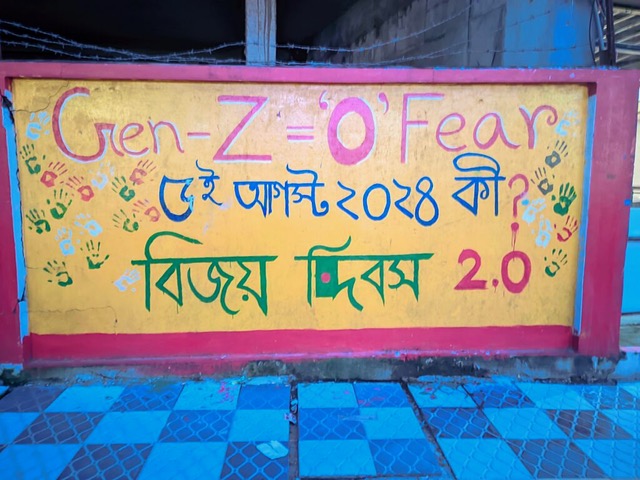 Gen-Z = 'O' Fear
৫ই আগস্ট ২০২৪ কী?
বিজয় দিবস 2.0